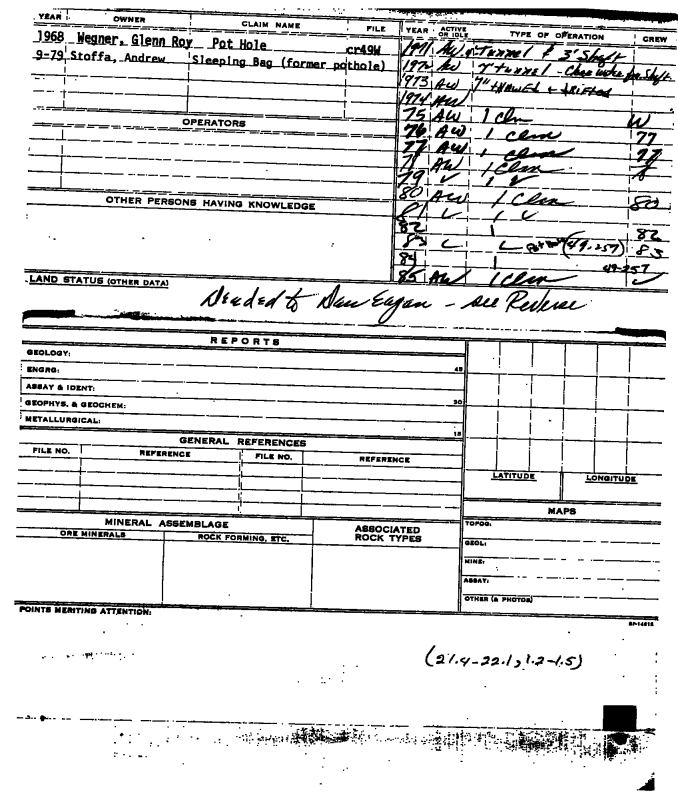 YEAR OWNER CLAIM NAME FILE
1968 Wegner, Glenn Roy Pot Hole cr49W
9-79 Stoffa, Andrew Sleeping Bag (former pothole)
OPERATORS
OTHER PERSONS HAVING KNOWLEDGE
YEAR ACTIVE OR IDLE TYPE OF OPERATION CREW
1971 AW tunnel & 3' Shaft
1972 AW 7' tunnel - for Shaft
1973 AW 7" thawed & drifted
1974 AW
75 AW 1 Clm W
76 AW 1 Clm 77
77 AW 1 Clm
AW 1 Clm
79 ✓ 1 ✓
80 AW 1 Clm 80
81 ✓ 1 ✓
82 1 82
83 (49-257) 83
84 1 49-257
85 AW 1 Clm ✓
LAND STATUS (OTHER DATA)
Deeded to Dan Eagan - see Reverse
REPORTS
GEOLOGY:
ENGRG: 45
ASSAY & IDENT:
GEOPHYS. & GEOCHEM: 30
METALLURGICAL: 15
GENERAL REFERENCES
FILE NO. REFERENCE FILE NO. REFERENCE
LATITUDE LONGITUDE
MINERAL ASSEMBLAGE
ORE MINERALS ROCK FORMING, ETC.
ASSOCIATED ROCK TYPES
MAPS
TOPOG:
GEOL:
MINE:
ASSAY:
OTHER (& PHOTOS)
POINTS MERITING ATTENTION:
(21.4-22.1, 1.2-1.5)